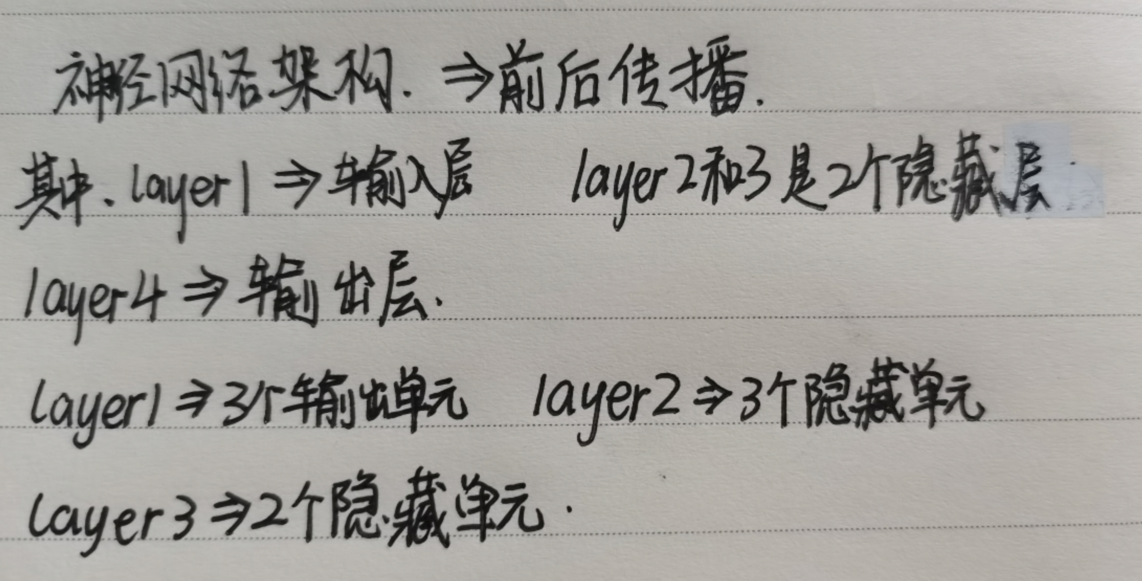 神经网络架构. ⇒前后传播.
其中、layer1 ⇒输入层 layer2和3是2个隐藏层
layer4 ⇒ 输出层.
layer1 ⇒3个输出单元 layer2 ⇒3个隐藏单元
layer3 ⇒2个隐藏单元.